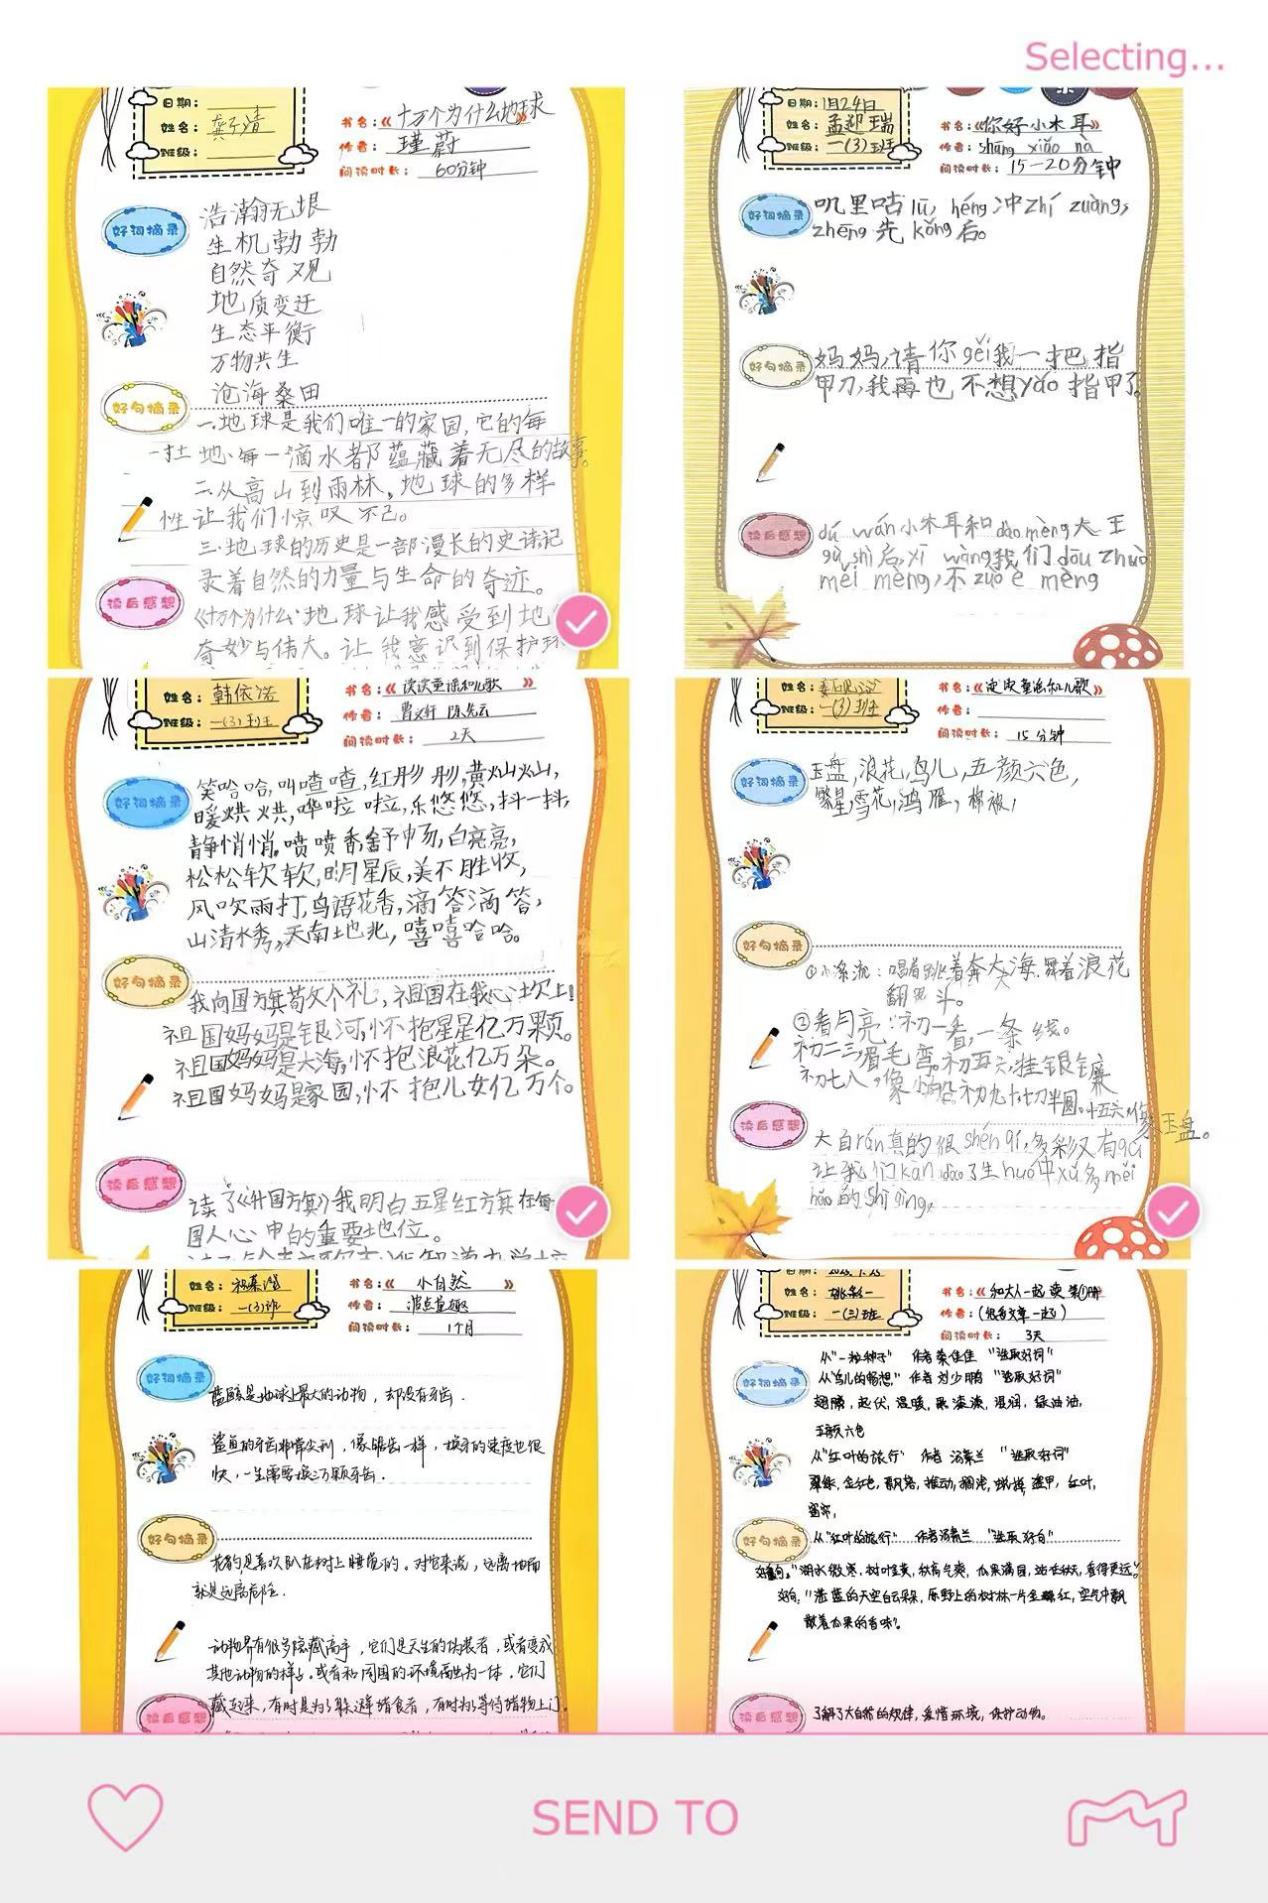 Selecting...
日期：
姓名：
班级：
书名：《十万个为什么地球》
作者：瑾蔚
阅读时长：60分钟
好词摘录
浩瀚无垠
生机勃勃
自然奇观
地质变迁
生态平衡
万物共生
沧海桑田
好句摘录
一.地球是我们唯一的家园,它的每
一抔土地、每一滴水都蕴藏着无尽的故事。
二.从高山到雨林,地球的多样
性让我们惊叹不已。
三.地球的历史是一部漫长的史诗,记
录着自然的力量与生命的奇迹。
读后感想
《十万个为什么》地球让我感受到地
奇妙与伟大。让我意识到保护环
日期：1月24日
姓名：孟迎瑞
班级：一(3)班
书名：《你好小木耳》
作者：shāng xiǎo nà
阅读时长：15-20分钟
好词摘录
叽里咕lū, héng冲zhí zuàng,
zhēng先kǒng后。
好句摘录
妈妈,请你gěi我一把指
甲刀,我再也不想yǎo指甲了。
读后感想
dú wán小木耳和dǎo mèng大王
gù shì后,xī wàng我们dōu zhuò
měi mèng,不zuò è mèng
姓名：韩依诺
班级：一(3)班
书名：《读读童谣和儿歌》
作者：曹文轩 陈先云
阅读时长：2天
好词摘录
笑哈哈,叫喳喳,红彤彤,黄灿灿,
暖烘烘,哗啦啦,乐悠悠,抖一抖,
静悄悄,喷喷香,舒畅,白亮亮,
松松软软,明月星辰,美不胜收,
风吹雨打,鸟语花香,滴答滴答,
山清水秀,天南地北,嘻嘻哈哈。
好句摘录
我向国旗敬个礼,祖国在我心坎上!
祖国妈妈是银河,怀抱星星亿万颗。
祖国妈妈是大海,怀抱浪花亿万朵。
祖国妈妈是家园,怀抱儿女亿万个。
读后感想
读了《升国旗》我明白五星红旗在每
国人心中的重要地位。
姓名：
班级：一(3)班
书名：《读读童谣和儿歌》
作者：
阅读时长：15分钟
好词摘录
玉盘,浪花,鸟儿,五颜六色,
繁星,雪花,鸿雁,棉被,
好句摘录
①小溪流：唱着跳着奔大海,舞着浪花
翻跟斗。
②看月亮：初一看,一条线。
初二三,眉毛弯。初五六,挂银镰
初七八,像小船。初九十,切半圆。十五六,像玉盘。
读后感想
大自rán真的很shén qí,多彩又有qù
让我们kàn dào了生huó中xǔ多měi
hǎo的shì qing,
姓名：
班级：一(3)班
书名：《小自然》
作者：波点童趣
阅读时长：1个月
好词摘录
蓝鲸是地球上最大的动物，却没有牙齿.
鲨鱼的牙齿非常尖利，像锯齿一样，换牙的速度也很
快，一生需要换三万颗牙齿.
好句摘录
我豹是喜欢趴在树上睡觉的。对它来说，远离地面
就是远离危险.
动物界有很多隐藏高手，它们是天生的伪装者，或者变成
其他动物的样子。或者和周围的环境融为一体，它们
藏起来，有时是为了躲避猎食者，有时为了等待猎物上门.
读后感想
姓名：姚彩一
班级：一(三)班
书名：《和大人一起读 第①册》
作者：(很多文章一起)
阅读时长：3天
好词摘录
从"一粒种子" 作者 秦佳佳 "选取好词"
从"鸟儿的畅想" 作者 刘少鹏 "选取好词"
翅膀，起伏，温暖，黑漆漆，湿润，绿油油，
五颜六色
从"红叶的旅行" 作者 汤素兰 "选取好词"
翠绿，金红色，飘落，推动，拥抱，蚂蚱，盔甲，红叶，
好句摘录
从"红叶的旅行" 作者汤素兰 "选取好句"
好句。"湖水微寒，树叶金黄，秋高气爽，瓜果满园，站在秋天，看得更远。
好句。"湛蓝的天空白云朵朵，原野上的树林一片金红，空气中飘
散着瓜果的香味"。
读后感想
了解了大自然的规律，爱惜环境，保护动物。
SEND TO